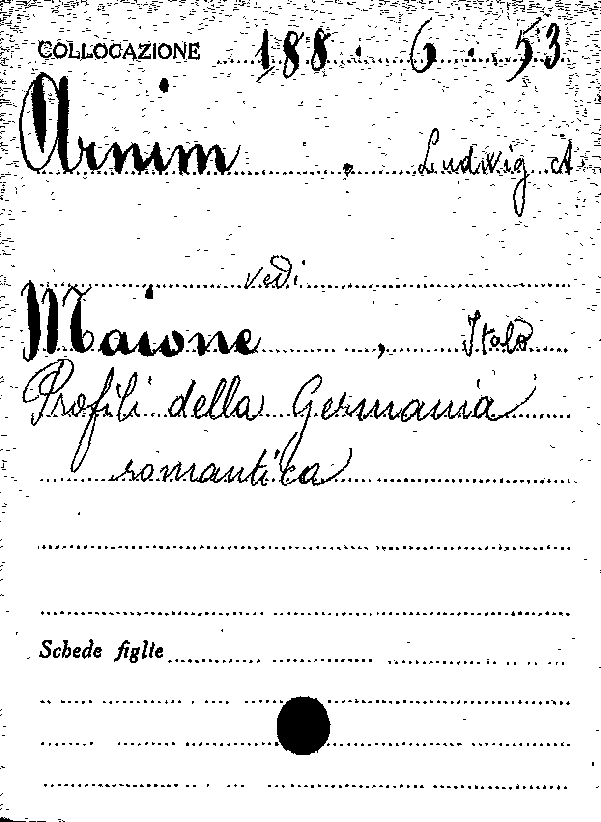 COLLOCAZIONE 188.6.53
Arnim, Ludwig A.
vedi
Maione, Italo
Profili della Germania
romantica
Schede figlie